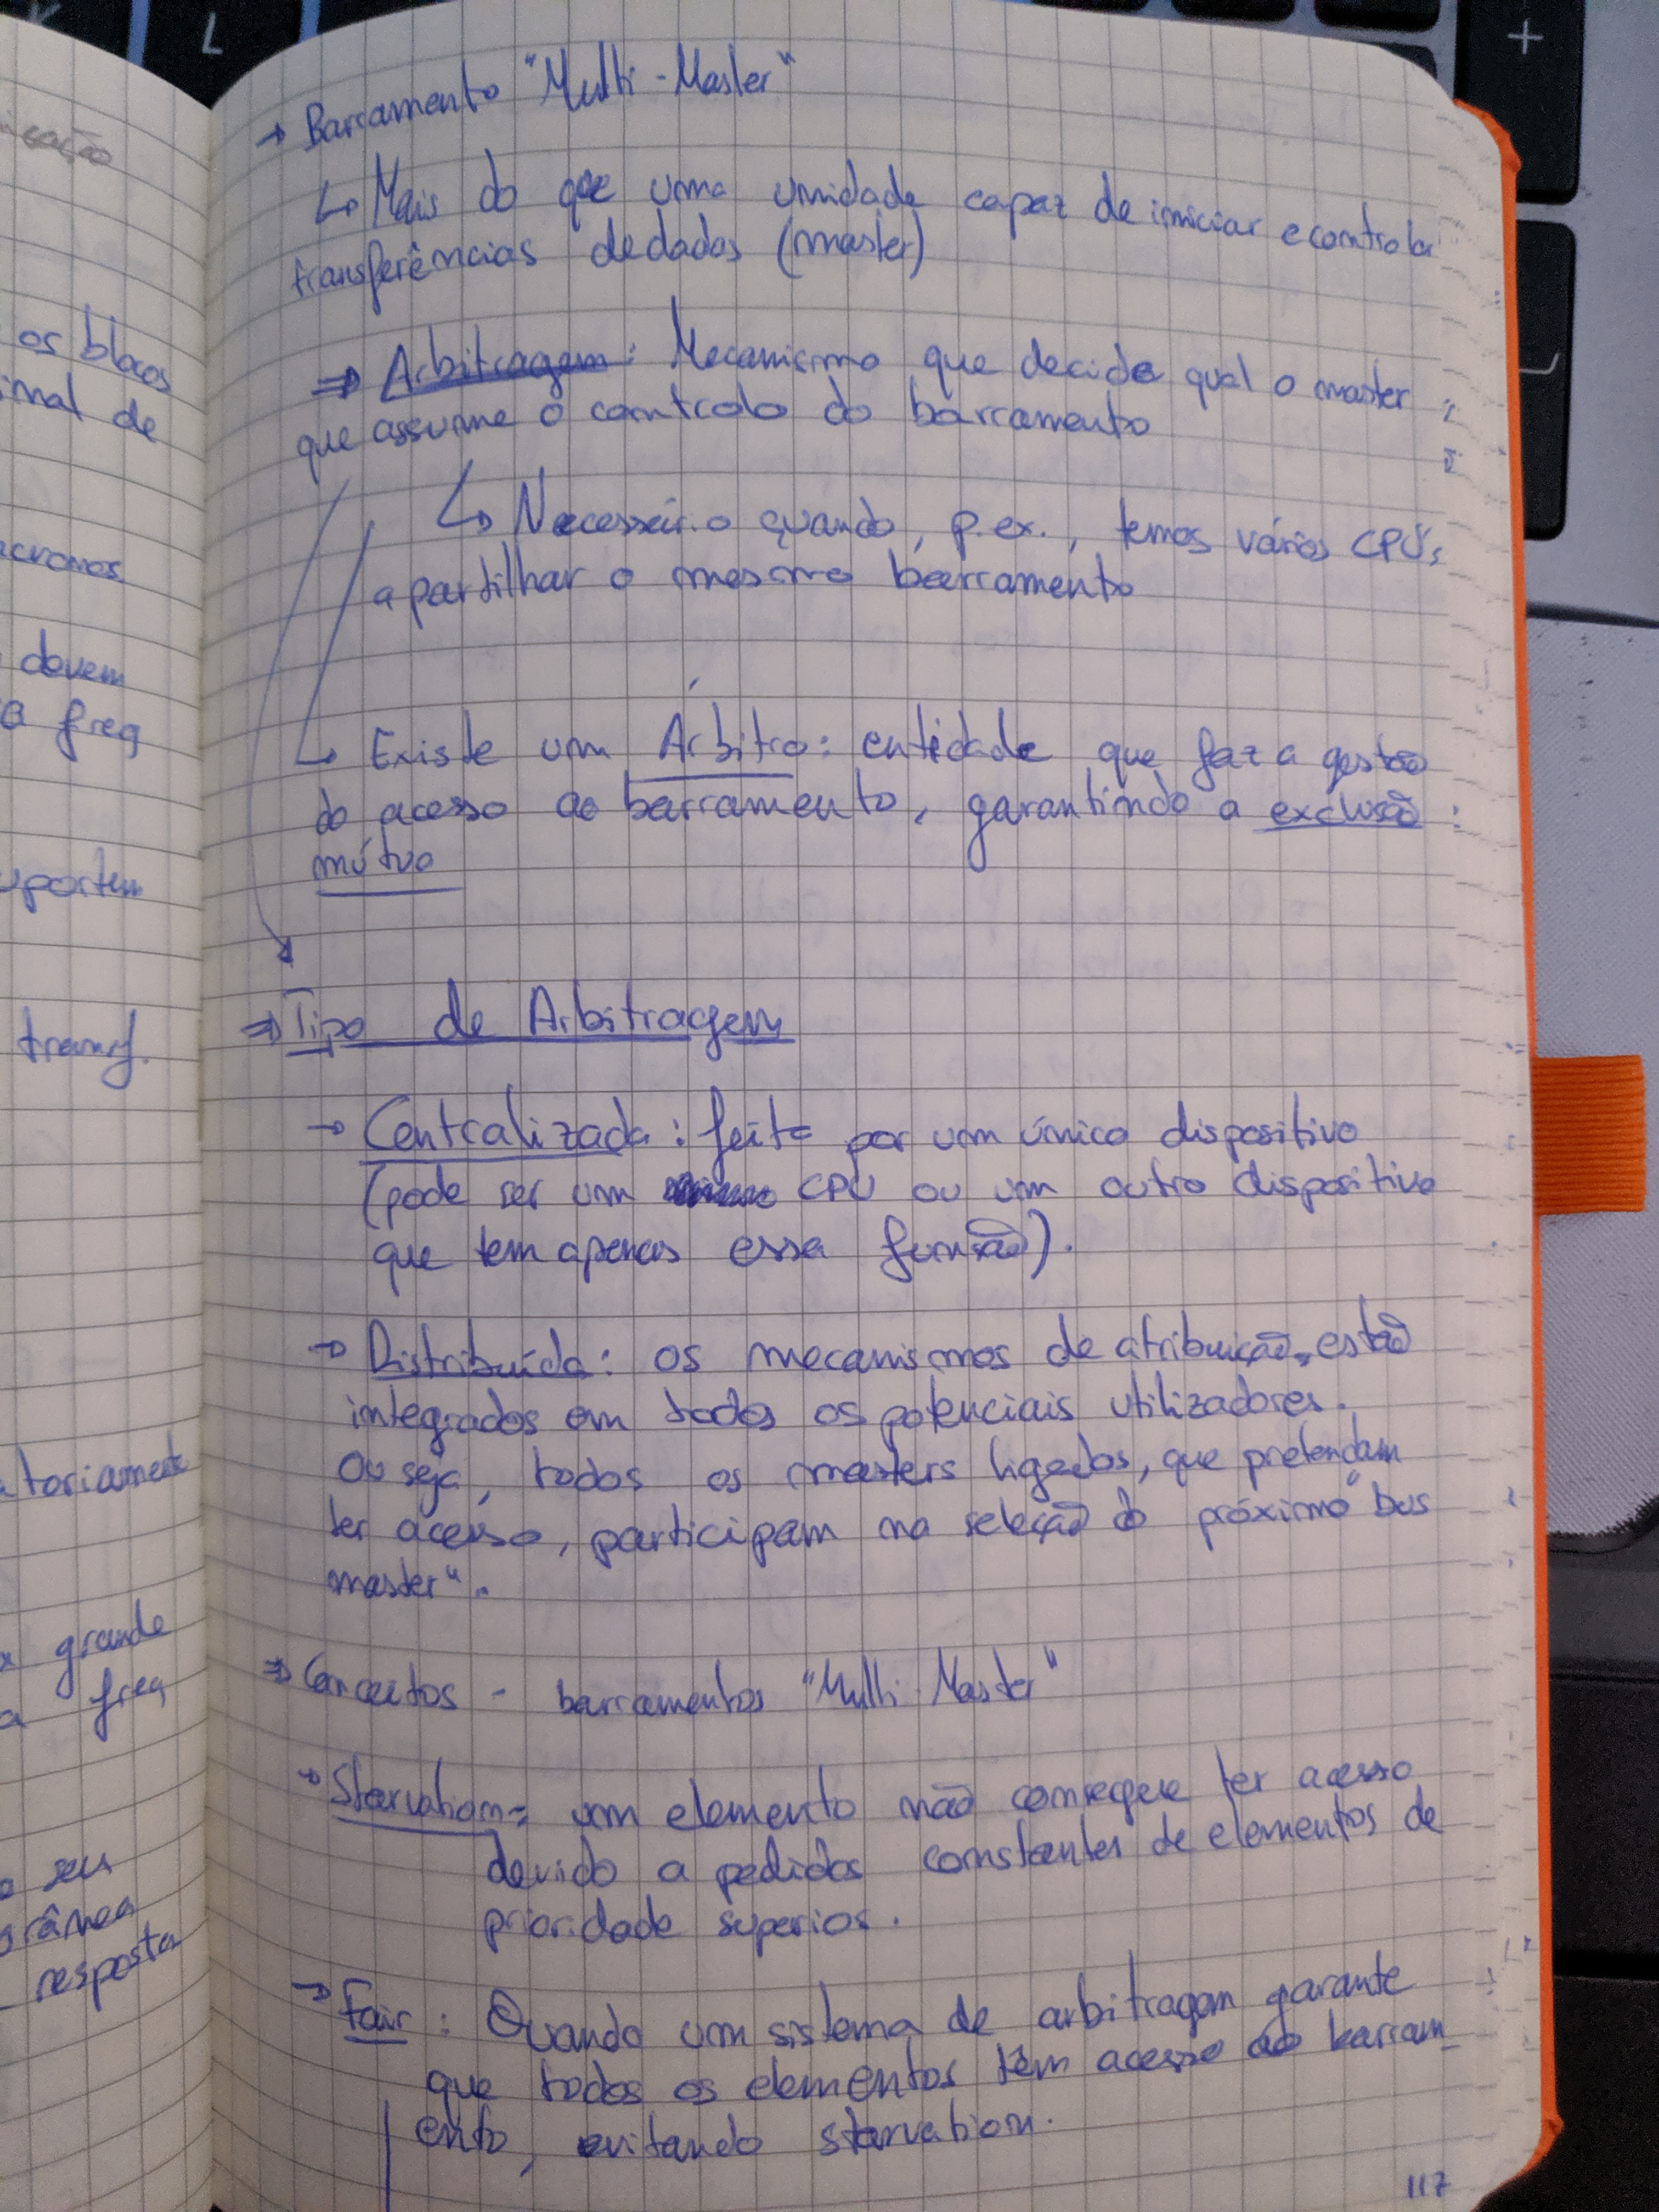 L
+
icação
os blocos
inal de
acronos
devem
a freq
uportem
transf.
atoriamente
grande
a freq
o seu
orânea
resposta
→ Barramento "Multi-Master"
↳ Mais do que uma unidade capaz de iniciar e controlar
transferências de dados (master)
⇒ Arbitragem: Mecanismo que decide qual o master
que assume o controlo do barramento
↳ Necessário quando, p.ex., temos vários CPU's
a partilhar o mesmo barramento
↳ Existe um Árbitro: entidade que faz a gestão
do acesso ao barramento, garantindo a exclusão
mútua
⇒ Tipo de Arbitragem
→ Centralizada: feita por um único dispositivo
(pode ser um CPU ou um outro dispositivo
que tem apenas essa função).
→ Distribuída: os mecanismos de atribuição estão
integrados em todos os potenciais utilizadores.
Ou seja, todos os masters ligados, que pretendam
ter acesso, participam na seleção do próximo "bus
master".
⇒ Conceitos - barramentos "Multi-Master"
→ Starvation: um elemento não consegue ter acesso
devido a pedidos constantes de elementos de
prioridade superior.
→ Fair: Quando um sistema de arbitragem garante
que todos os elementos têm acesso ao barram_
ento, evitando starvation.
117